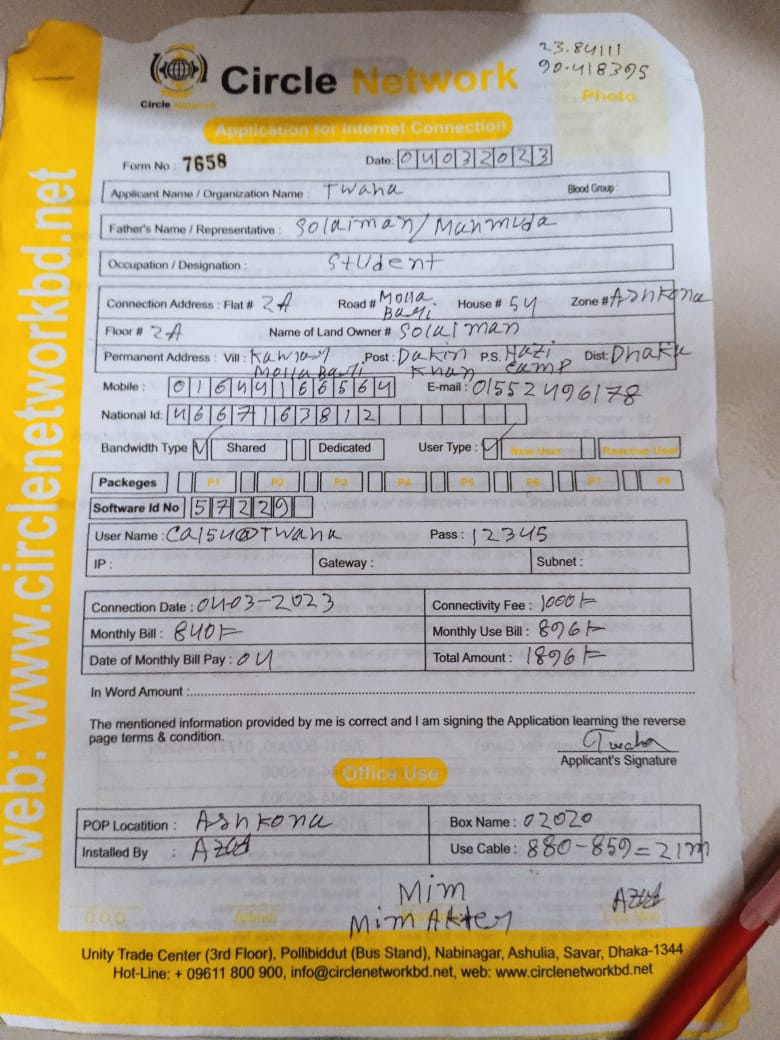 23.84111
90.418395
Circle Network
Circle Network
Photo
Application for Internet Connection
Form No : 7658
Date: 04032023
Applicant Name / Organization Name : Twaha
Blood Group :
Father's Name / Representative : Solaiman/ Mahmuda
Occupation / Designation : Student
Connection Address : Flat # 2A Road # Molla Bari House # 54 Zone # Ashkona
Floor # 2A Name of Land Owner # Solaiman
Permanent Address : Vill : Kawlar Molla Bari Post : Dakin Khan P.S. Hazi Camp Dist: Dhaka
Mobile : 01644166564 E-mail : 01552496178
National Id: 4667163812
Bandwidth Type Shared Dedicated User Type : New User Reactive User
Packeges P1 P2 P3 P4 P5 P6 P7 P8
Software Id No 57229
User Name : CA154@Twaha Pass : 12345
IP : Gateway : Subnet :
Connection Date : 04-03-2023 Connectivity Fee : 1000/-
Monthly Bill : 840/- Monthly Use Bill : 896/-
Date of Monthly Bill Pay : 04 Total Amount : 1896/-
In Word Amount :
The mentioned information provided by me is correct and I am signing the Application learning the reverse
page terms & condition.
Twaha
Applicant's Signature
Office Use
POP Locatition : Ashkona Box Name : 02020
Installed By : Azad Use Cable : 880-859=21m
Mim
Mim Akter
Azad
Unity Trade Center (3rd Floor), Pollibiddut (Bus Stand), Nabinagar, Ashulia, Savar, Dhaka-1344
Hot-Line: + 09611 800 900, info@circlenetworkbd.net, web: www.circlenetworkbd.net
web: www.circlenetworkbd.net